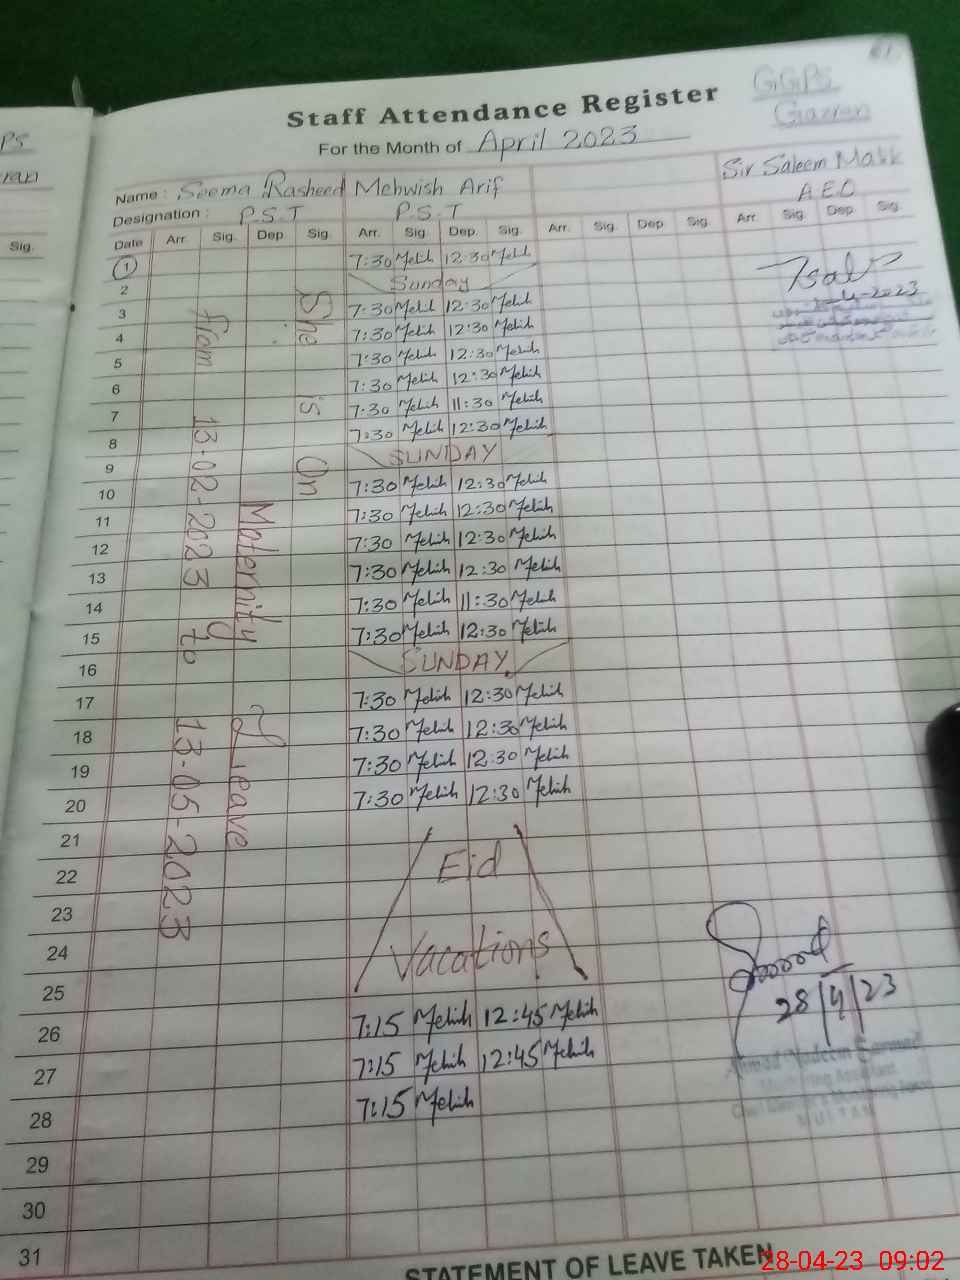 61
GGPS
Gazran
Staff Attendance Register
For the Month of April 2023
PS
ran
Sig.
Name : Seema Rasheed Mehwish Arif Sir Saleem Malik
Designation : P.S.T P.S.T A.E.O
Date Arr. Sig. Dep. Sig. Arr. Sig. Dep. Sig. Arr. Sig. Dep Sig. Arr. Sig. Dep Sig.
1 7:30 Mehih 12:30 Mehih
2 Sunday
3 7:30 Mehih 12:30 Mehih
4 7:30 Mehih 12:30 Mehih
5 7:30 Mehih 12:30 Mehih
6 7:30 Mehih 12:30 Mehih
7 7:30 Mehih 11:30 Mehih
8 7:30 Mehih 12:30 Mehih
9 SUNDAY
10 7:30 Mehih 12:30 Mehih
11 7:30 Mehih 12:30 Mehih
12 7:30 Mehih 12:30 Mehih
13 7:30 Mehih 12:30 Mehih
14 7:30 Mehih 11:30 Mehih
15 7:30 Mehih 12:30 Mehih
16 SUNDAY
17 7:30 Mehih 12:30 Mehih
18 7:30 Mehih 12:30 Mehih
19 7:30 Mehih 12:30 Mehih
20 7:30 Mehih 12:30 Mehih
21
22 Eid
23
24 Vacations
25
26 7:15 Mehih 12:45 Mehih
27 7:15 Mehih 12:45 Mehih
28 7:15 Mehih
29
30
31
She is On
Maternity Leave
from 13-02-2023 to 13-05-2023
28/4/23
Ahmad Nadeem Sarmad
Monitoring Assistant
MULTAN
STATEMENT OF LEAVE TAKEN
28-04-23 09:02